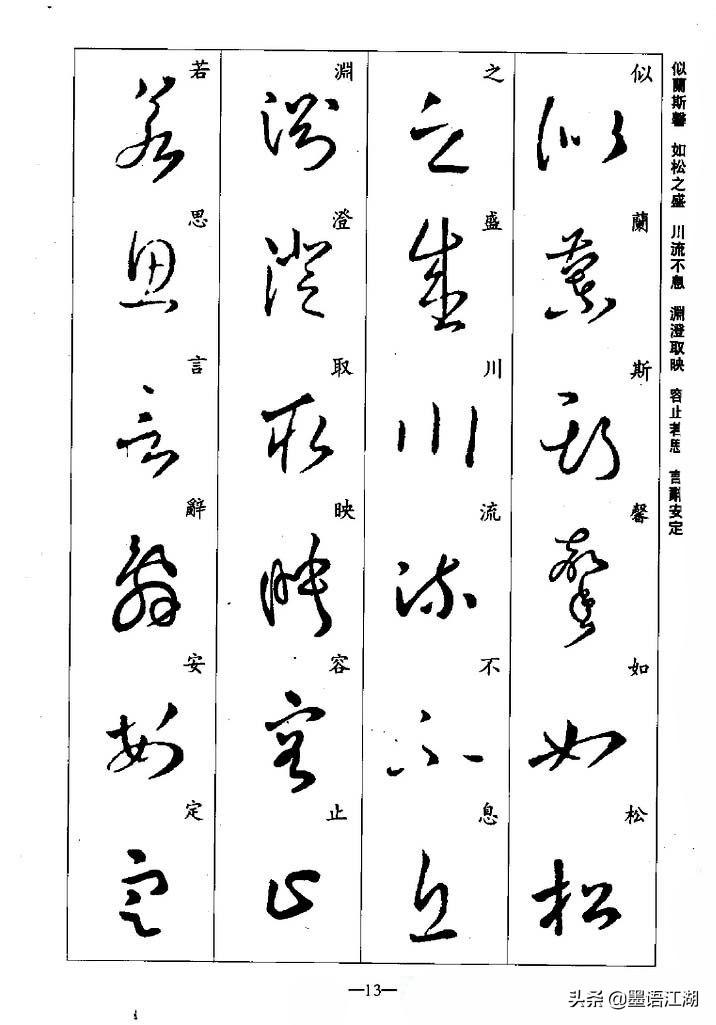 似蘭斯馨 如松之盛 川流不息 淵澄取映 容止若思 言辭安定
似蘭斯馨如松
之盛川流不息
淵澄取映容止
若思言辭安定
—13—
头条 @墨语江湖